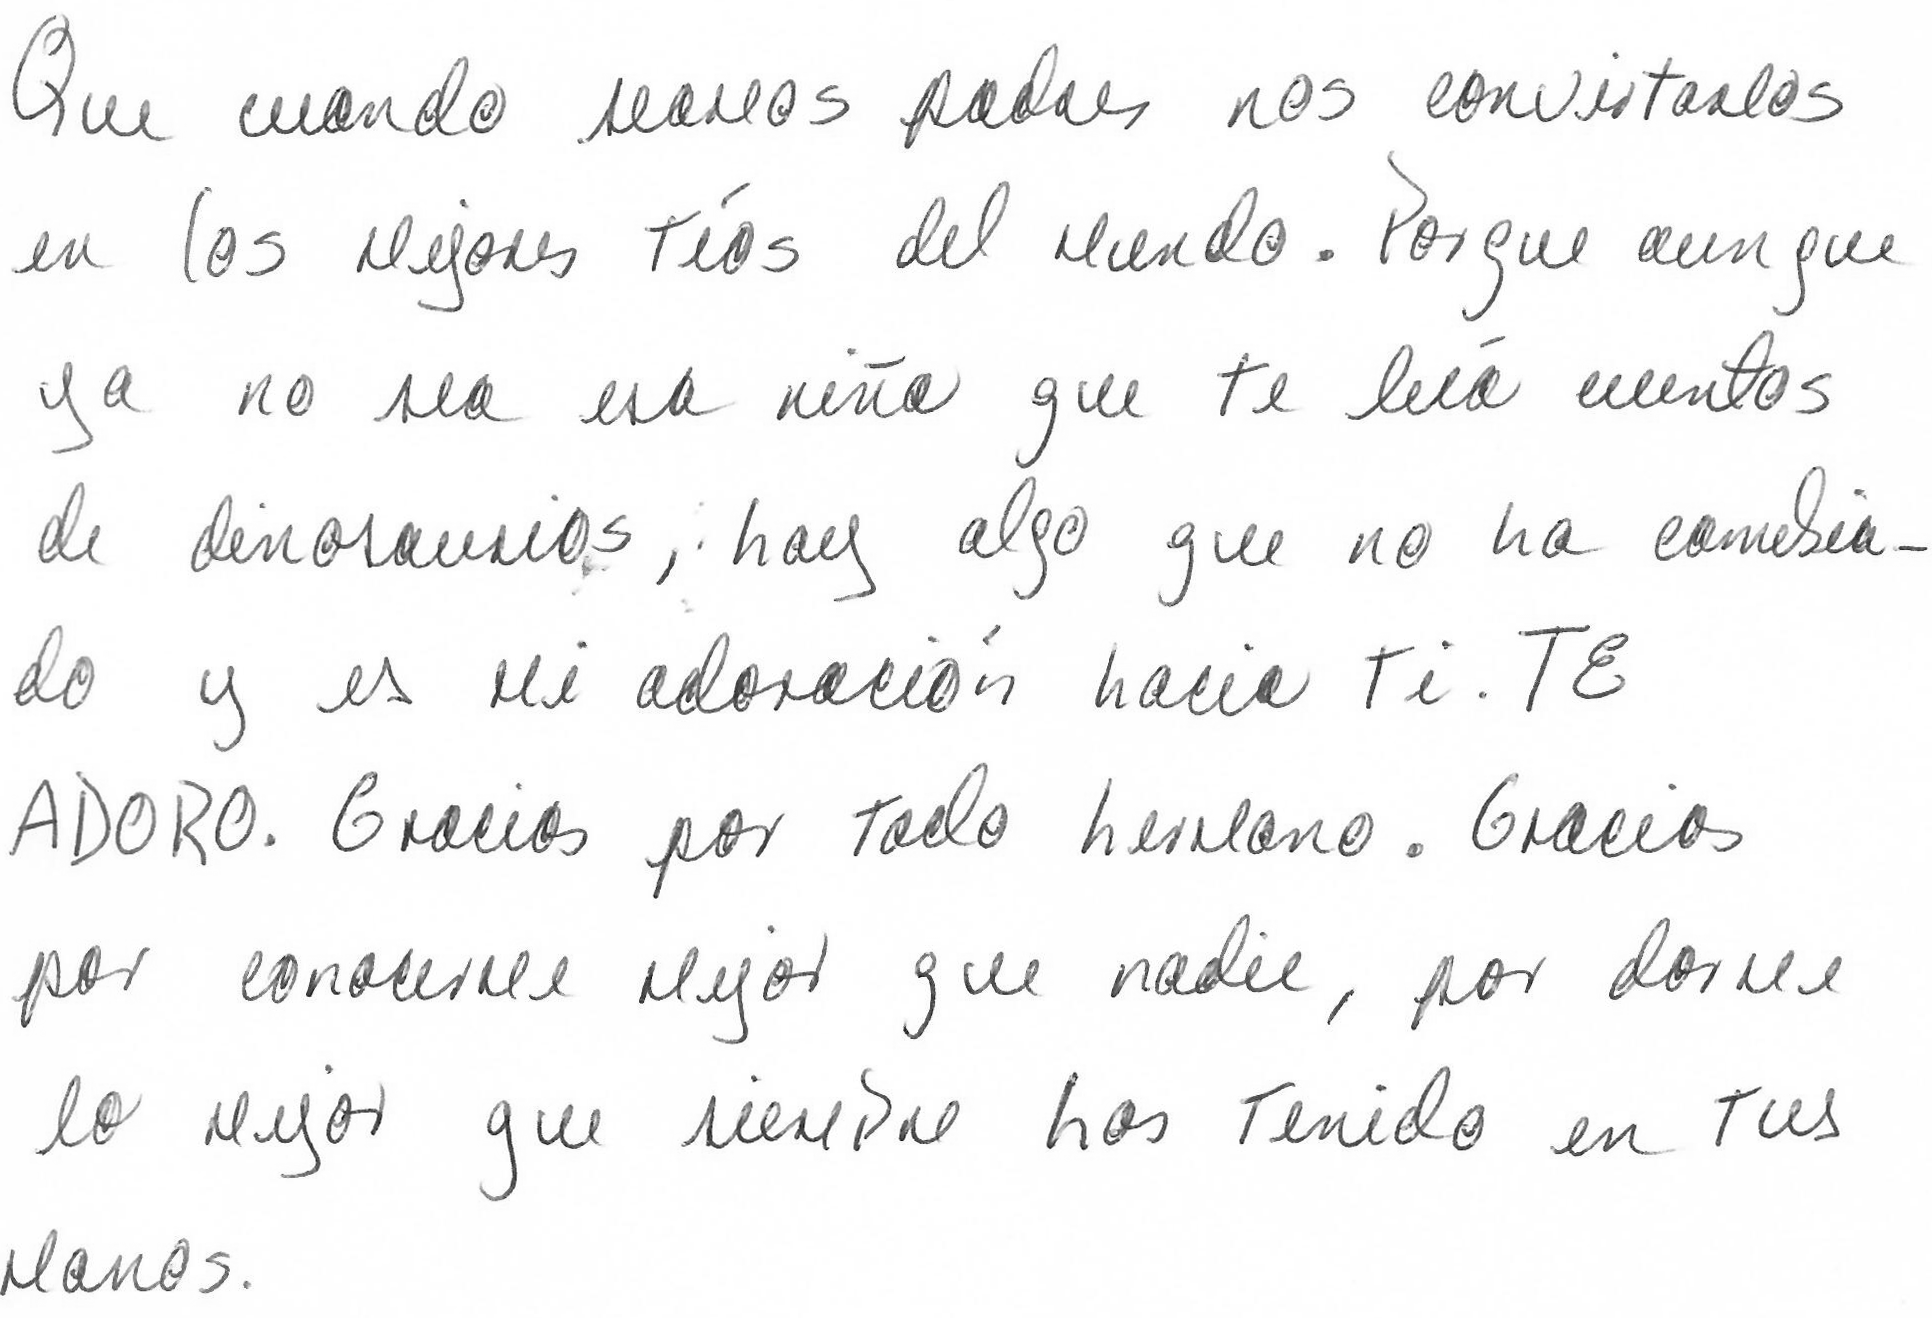 Que cuando seamos padres nos convirtamos
en los mejores tíos del mundo. Porque aunque
ya no sea esa niña que te leía cuentos
de dinosaurios, hay algo que no ha cambia-
do y es mi adoración hacia ti. TE
ADORO. Gracias por todo hermano. Gracias
por conocerme mejor que nadie, por darme
lo mejor que siempre has tenido en tus
manos.